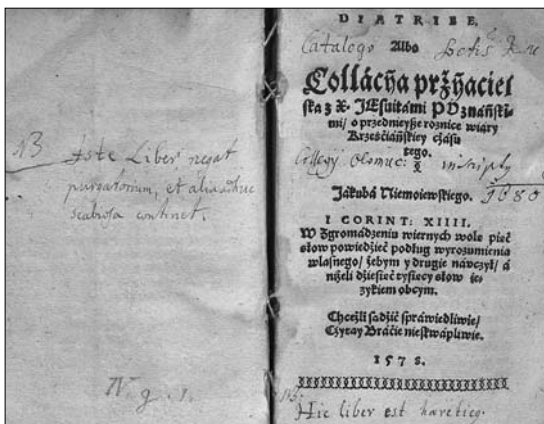 NB Iste Liber negat
purgatorium, et alia adhuc
scabrosa continet.
IV. g. 1.
DIATRIBE,
Catalogo Albo
Colláčya przyiaciel
ska z X. JEsuitámi POznáński-
mi/ o przednieysze roznice wiáry
Krześćiáńskiey czásu
tego.
Collegij Olomuc: inscriptꝯ
1680
Jákubá Niemoiewskiego.
I CORINT: XIIII.
W Zgromádzeniu wiernych wole pieć
słow powiedzieć podług wyrozumienia
własnego/ żebym y drugie náuczył/ á
niżeli dźieśieć tyśiecy słow ie-
zykiem obcym.
Chceszli sądźić spráwiedliwie/
Czytay Bráćie nieskwápliwie.
1573.
NB.
Hic liber est hæreticꝯ.